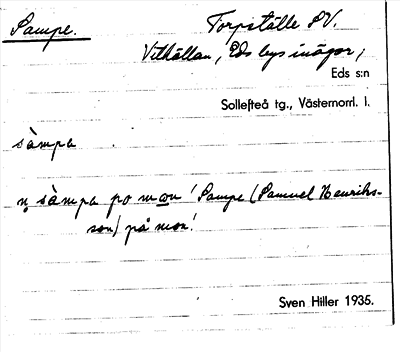 Sampe. Torpställe SV.
Vithällan, Eds bys inägor,
Eds s:n
Sollefteå tg., Västernorrl. l.
sàmpa
n sàmpa po mon! Sampe (Samuel Henriks-
son) på mon!
Sven Hiller 1935.